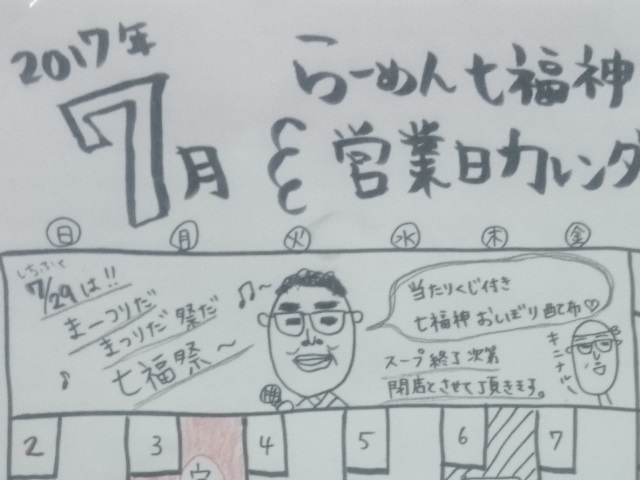 2017年
7月
らーめん七福神
営業日カレンダ
日 月 火 水 木 金
しちふく
7/29は!!
まーつりだ
まつりだ 祭だ
七福祭～
当たりくじ付き
七福神おしぼり配布♡
スープ終了次第
閉店とさせて頂きます。
2 3 4 5 6 7